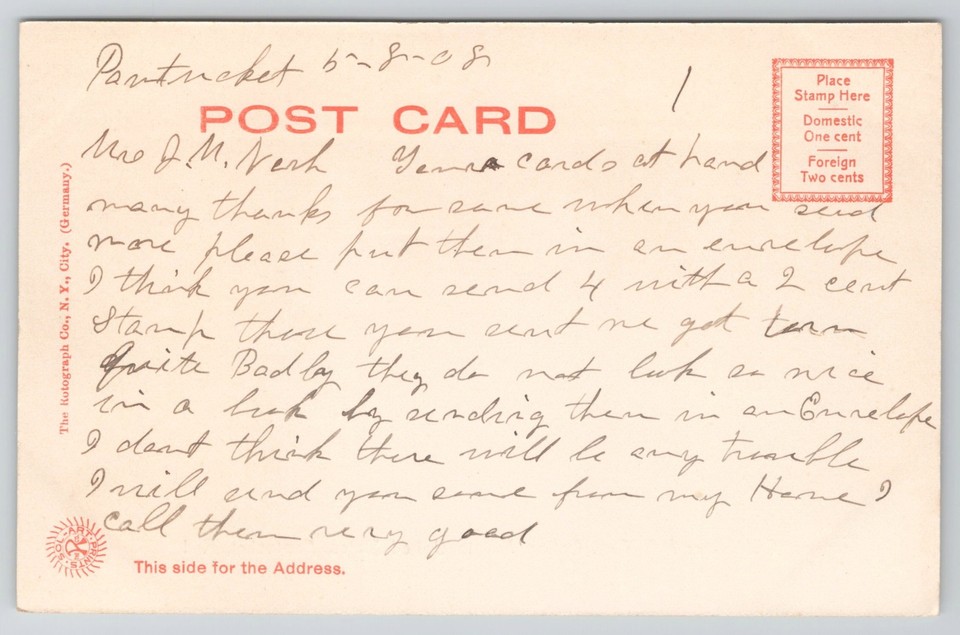 Pawtucket 5-8-08
1
POST CARD
Place
Stamp Here
Domestic
One cent
Foreign
Two cents
Mrs J. M. Your cards at hand
many thanks for same when you send
more please put them in an envelope
I think you can send 4 with a 2 cent
Stamp those you sent me got torn
Quite Badly they do not look so nice
in a book by sending them in an Envelope
I dont think there will be any trouble
I will send you some from my Home I
call them very good
This side for the Address.
The Rotograph Co., N. Y., City. (Germany.)
SOL-ART-PRINTS